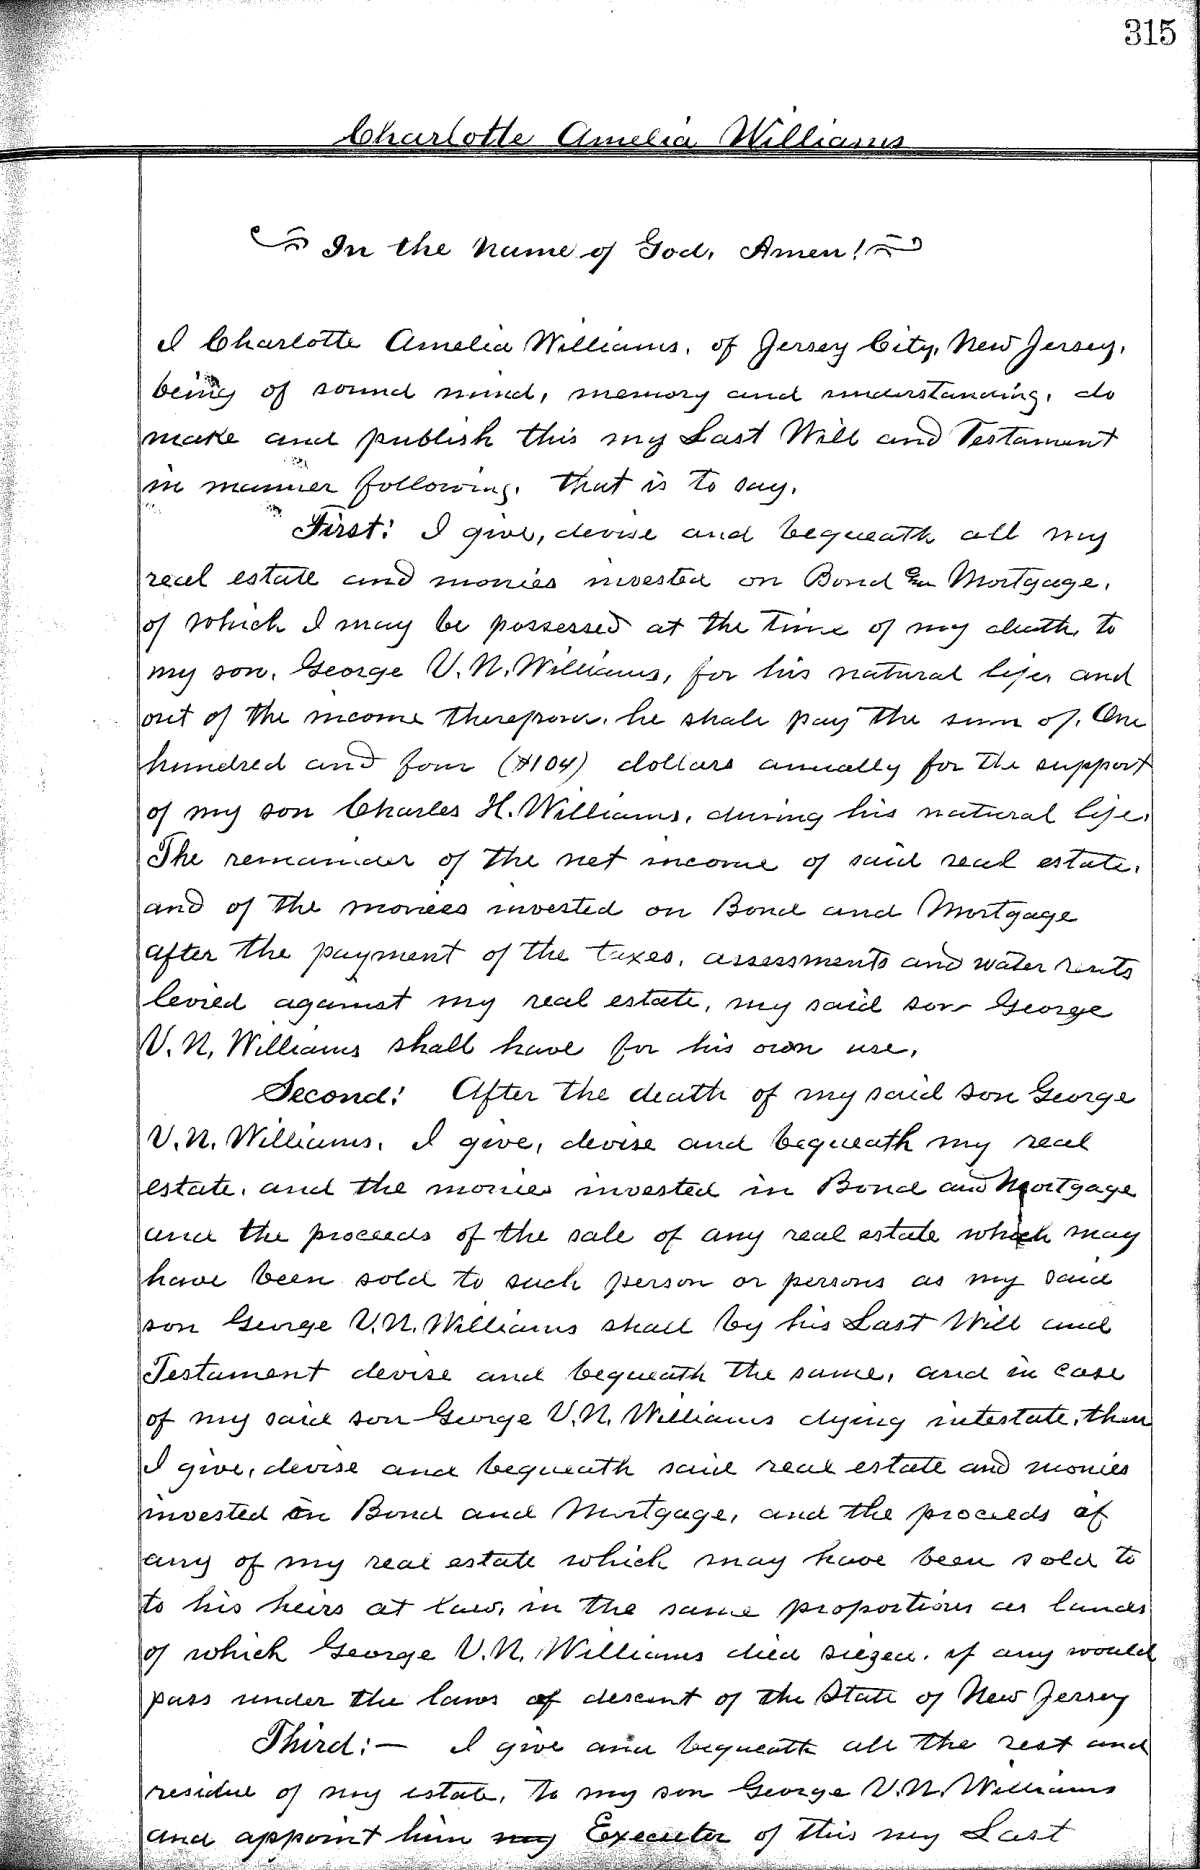 315
Charlotte Amelia Williams
In the Name of God, Amen!
I Charlotte Amelia Williams, of Jersey City, New Jersey,
being of sound mind, memory and understanding, do
make and publish this my Last Will and Testament
in manner following, that is to say,
First: I give, devise and bequeath all my
real estate and monies invested on Bond and Mortgage,
of which I may be possessed at the time of my death, to
my son, George V. N. Williams, for his natural life, and
out of the income therefrom, he shall pay the sum of, One
hundred and four ($104) dollars annually for the support
of my son Charles H. Williams, during his natural life.
The remainder of the net income of said real estate,
and of the monies invested on Bond and Mortgage
after the payment of the taxes, assessments and water rents
levied against my real estate, my said son George
V. N. Williams shall have for his own use.
Second: After the death of my said son George
V. N. Williams, I give, devise and bequeath my real
estate, and the monies invested in Bond and Mortgage
and the proceeds of the sale of any real estate which may
have been sold to such person or persons as my said
son George V. N. Williams shall by his Last Will and
Testament devise and bequeath the same, and in case
of my said son George V. N. Williams dying intestate, then
I give, devise and bequeath said real estate and monies
invested in Bond and Mortgage, and the proceeds of
any of my real estate which may have been sold to
to his heirs at law, in the same proportions as lands
of which George V. N. Williams died siezed, if any would
pass under the laws of descent of the State of New Jersey
Third:— I give and bequeath all the rest and
residue of my estate, to my son George V. N. Williams
and appoint him my Executor of this my Last